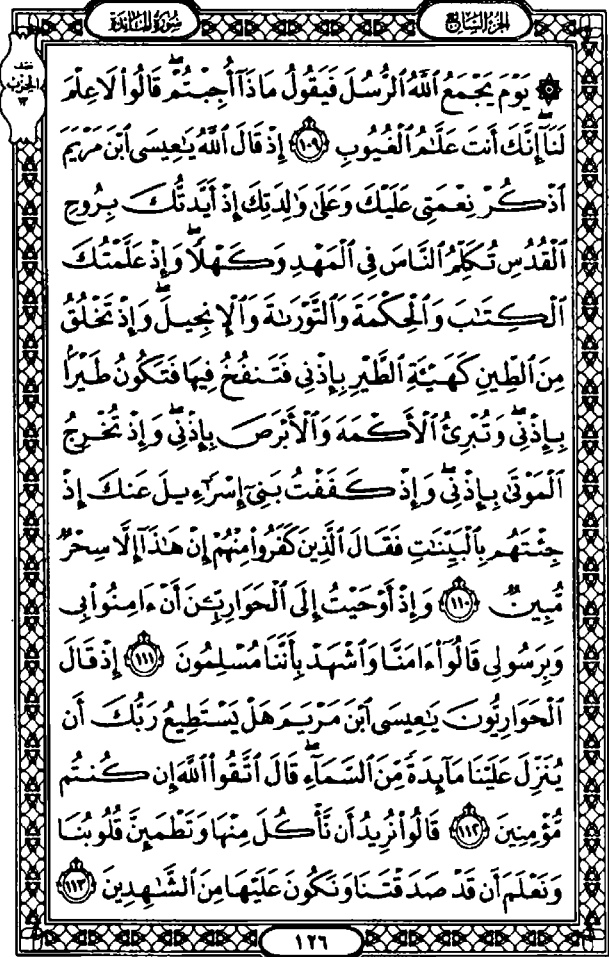 سُورَةُ المَائدَة
الجزء السابع
۞ يَوْمَ يَجْمَعُ ٱللَّهُ ٱلرُّسُلَ فَيَقُولُ مَاذَآ أُجِبْتُمْۖ قَالُوا۟ لَا عِلْمَ
لَنَآۖ إِنَّكَ أَنتَ عَلَّٰمُ ٱلْغُيُوبِ ۝١٠٩ إِذْ قَالَ ٱللَّهُ يَٰعِيسَى ٱبْنَ مَرْيَمَ
ٱذْكُرْ نِعْمَتِى عَلَيْكَ وَعَلَىٰ وَٰلِدَتِكَ إِذْ أَيَّدتُّكَ بِرُوحِ
ٱلْقُدُسِ تُكَلِّمُ ٱلنَّاسَ فِى ٱلْمَهْدِ وَكَهْلًاۖ وَإِذْ عَلَّمْتُكَ
ٱلْكِتَٰبَ وَٱلْحِكْمَةَ وَٱلتَّوْرَىٰةَ وَٱلْإِنجِيلَۖ وَإِذْ تَخْلُقُ
مِنَ ٱلطِّينِ كَهَيْـَٔةِ ٱلطَّيْرِ بِإِذْنِى فَتَنفُخُ فِيهَا فَتَكُونُ طَيْرًۢا
بِإِذْنِىۖ وَتُبْرِئُ ٱلْأَكْمَهَ وَٱلْأَبْرَصَ بِإِذْنِىۖ وَإِذْ تُخْرِجُ
ٱلْمَوْتَىٰ بِإِذْنِىۖ وَإِذْ كَفَفْتُ بَنِىٓ إِسْرَٰٓءِيلَ عَنكَ إِذْ
جِئْتَهُم بِٱلْبَيِّنَٰتِ فَقَالَ ٱلَّذِينَ كَفَرُوا۟ مِنْهُمْ إِنْ هَٰذَآ إِلَّا سِحْرٌ
مُّبِينٌ ۝١١٠ وَإِذْ أَوْحَيْتُ إِلَى ٱلْحَوَارِيِّـۧنَ أَنْ ءَامِنُوا۟ بِى
وَبِرَسُولِى قَالُوٓا۟ ءَامَنَّا وَٱشْهَدْ بِأَنَّنَا مُسْلِمُونَ ۝١١١ إِذْ قَالَ
ٱلْحَوَارِيُّونَ يَٰعِيسَى ٱبْنَ مَرْيَمَ هَلْ يَسْتَطِيعُ رَبُّكَ أَن
يُنَزِّلَ عَلَيْنَا مَآئِدَةً مِّنَ ٱلسَّمَآءِۖ قَالَ ٱتَّقُوا۟ ٱللَّهَ إِن كُنتُم
مُّؤْمِنِينَ ۝١١٢ قَالُوا۟ نُرِيدُ أَن نَّأْكُلَ مِنْهَا وَتَطْمَئِنَّ قُلُوبُنَا
وَنَعْلَمَ أَن قَدْ صَدَقْتَنَا وَنَكُونَ عَلَيْهَا مِنَ ٱلشَّٰهِدِينَ ۝١١٣
١٢٦
الحزب
١٣